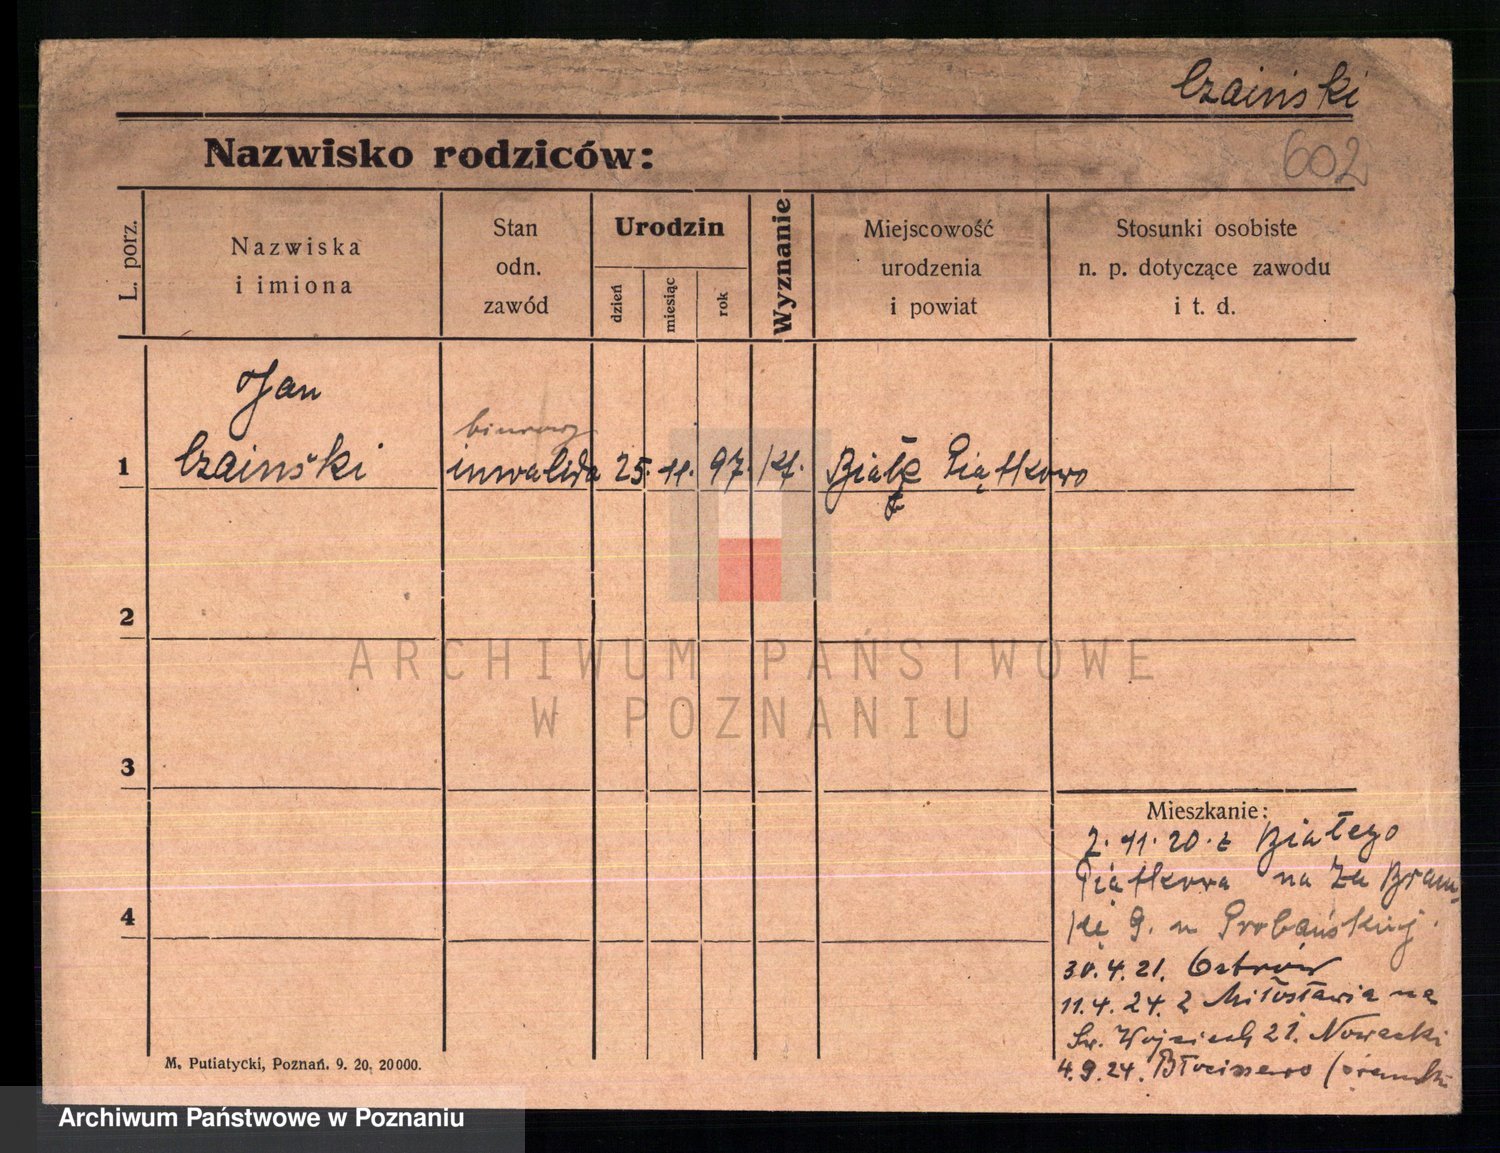 Czaiński
602
Nazwisko rodziców:
L. porz.
Nazwiska
i imiona
Stan
odn.
zawód
Urodzin
dzień
miesiąc
rok
Wyznanie
Miejscowość
urodzenia
i powiat
Stosunki osobiste
n. p. dotyczące zawodu
i t. d.
Jan
biurowy
1 Czaiński inwalida 25. 11. 97. kt. Białe Piątkowo
2
ARCHIWUM PAŃSTWOWE
W POZNANIU
3
Mieszkanie:
2. 11. 20. z Białego
Piątkowa na Za Bram-
ką 9. u
4
30.4.21. Ostrów
11.4.24. z Miłosławia na
Św. Wojciech 21. Nowacki
4.9.24. Błociszewo (śremski
M. Putiatycki, Poznań. 9. 20. 20000.
Archiwum Państwowe w Poznaniu